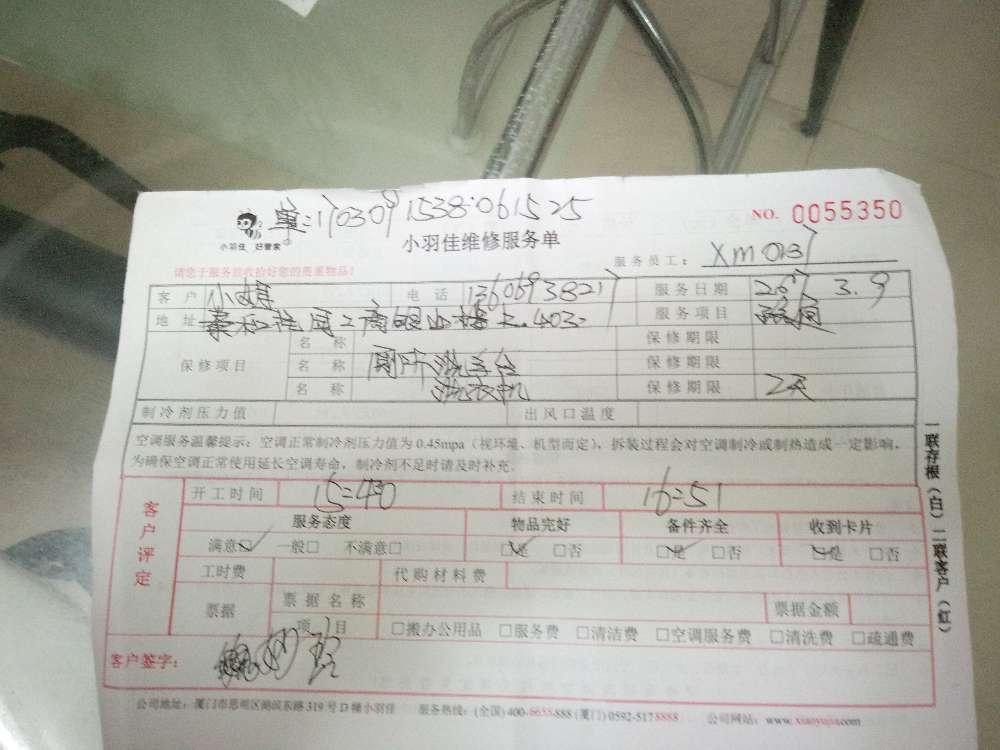 单:170309 1538.061525
NO. 0055350
小羽佳 好管家
小羽佳维修服务单
服务员工:
请您于服务前收拾好您的贵重物品!
客户 小 电话 13606938217 服务日期 3.9
地址 403 服务项目
保修项目 名称 保修期限
名称 厕所洗手台 保修期限
名称 洗衣机 保修期限 2天
制冷剂压力值 出风口温度
空调服务温馨提示:空调正常制冷剂压力值为0.45mpa(视环境、机型而定),拆装过程会对空调制冷或制热造成一定影响,
为确保空调正常使用延长空调寿命,制冷剂不足时请及时补充。
客户评定
开工时间 结束时间 16=51
服务态度 物品完好 备件齐全 收到卡片
满意□ 一般□ 不满意□ □是 □否 □是 □否 □是 □否
工时费 代购材料费
票据 票据名称 票据金额
项目 □搬办公用品 □服务费 □清洁费 □空调服务费 □清洗费 □疏通费
客户签字:
公司地址:厦门市思明区湖滨东路319号D幢小羽佳 服务热线:(全国)400-6655-888(厦门)0592-5178888 公司网站:www.xiaoyujia.com
一联存根(白)二联客户(红)